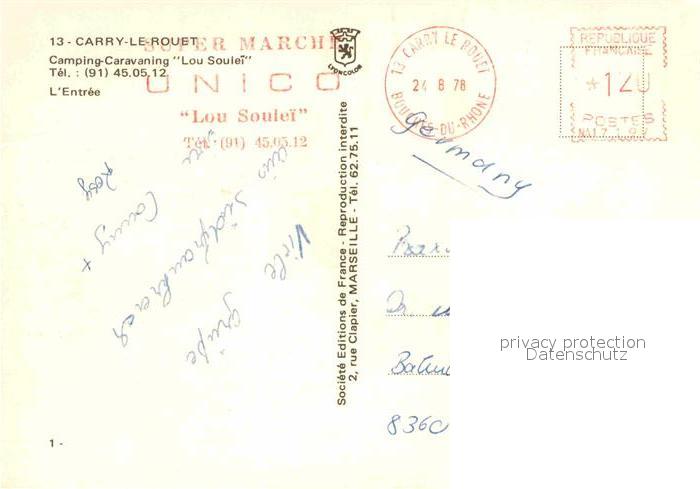 13 - CARRY-LE-ROUET
Camping-Caravaning "Lou Souleï"
Tél. : (91) 45.05.12
L'Entrée
SUPER MARCHE
UNICO
"Lou Souleï"
Tél. (91) 45.05.12
LYONCOLOR
13 CARRY LE ROUET
24 8 78
BOUCHES-DU-RHONE
REPUBLIQUE
FRANCAISE
POSTES
Germany
Viele Grüße
aus
Südfrankreich
Conny +
Rosy
Société Editions de France - Reproduction interdite
2, rue Clapier, MARSEILLE - Tél. 62.75.11
privacy protection
Datenschutz
1 -